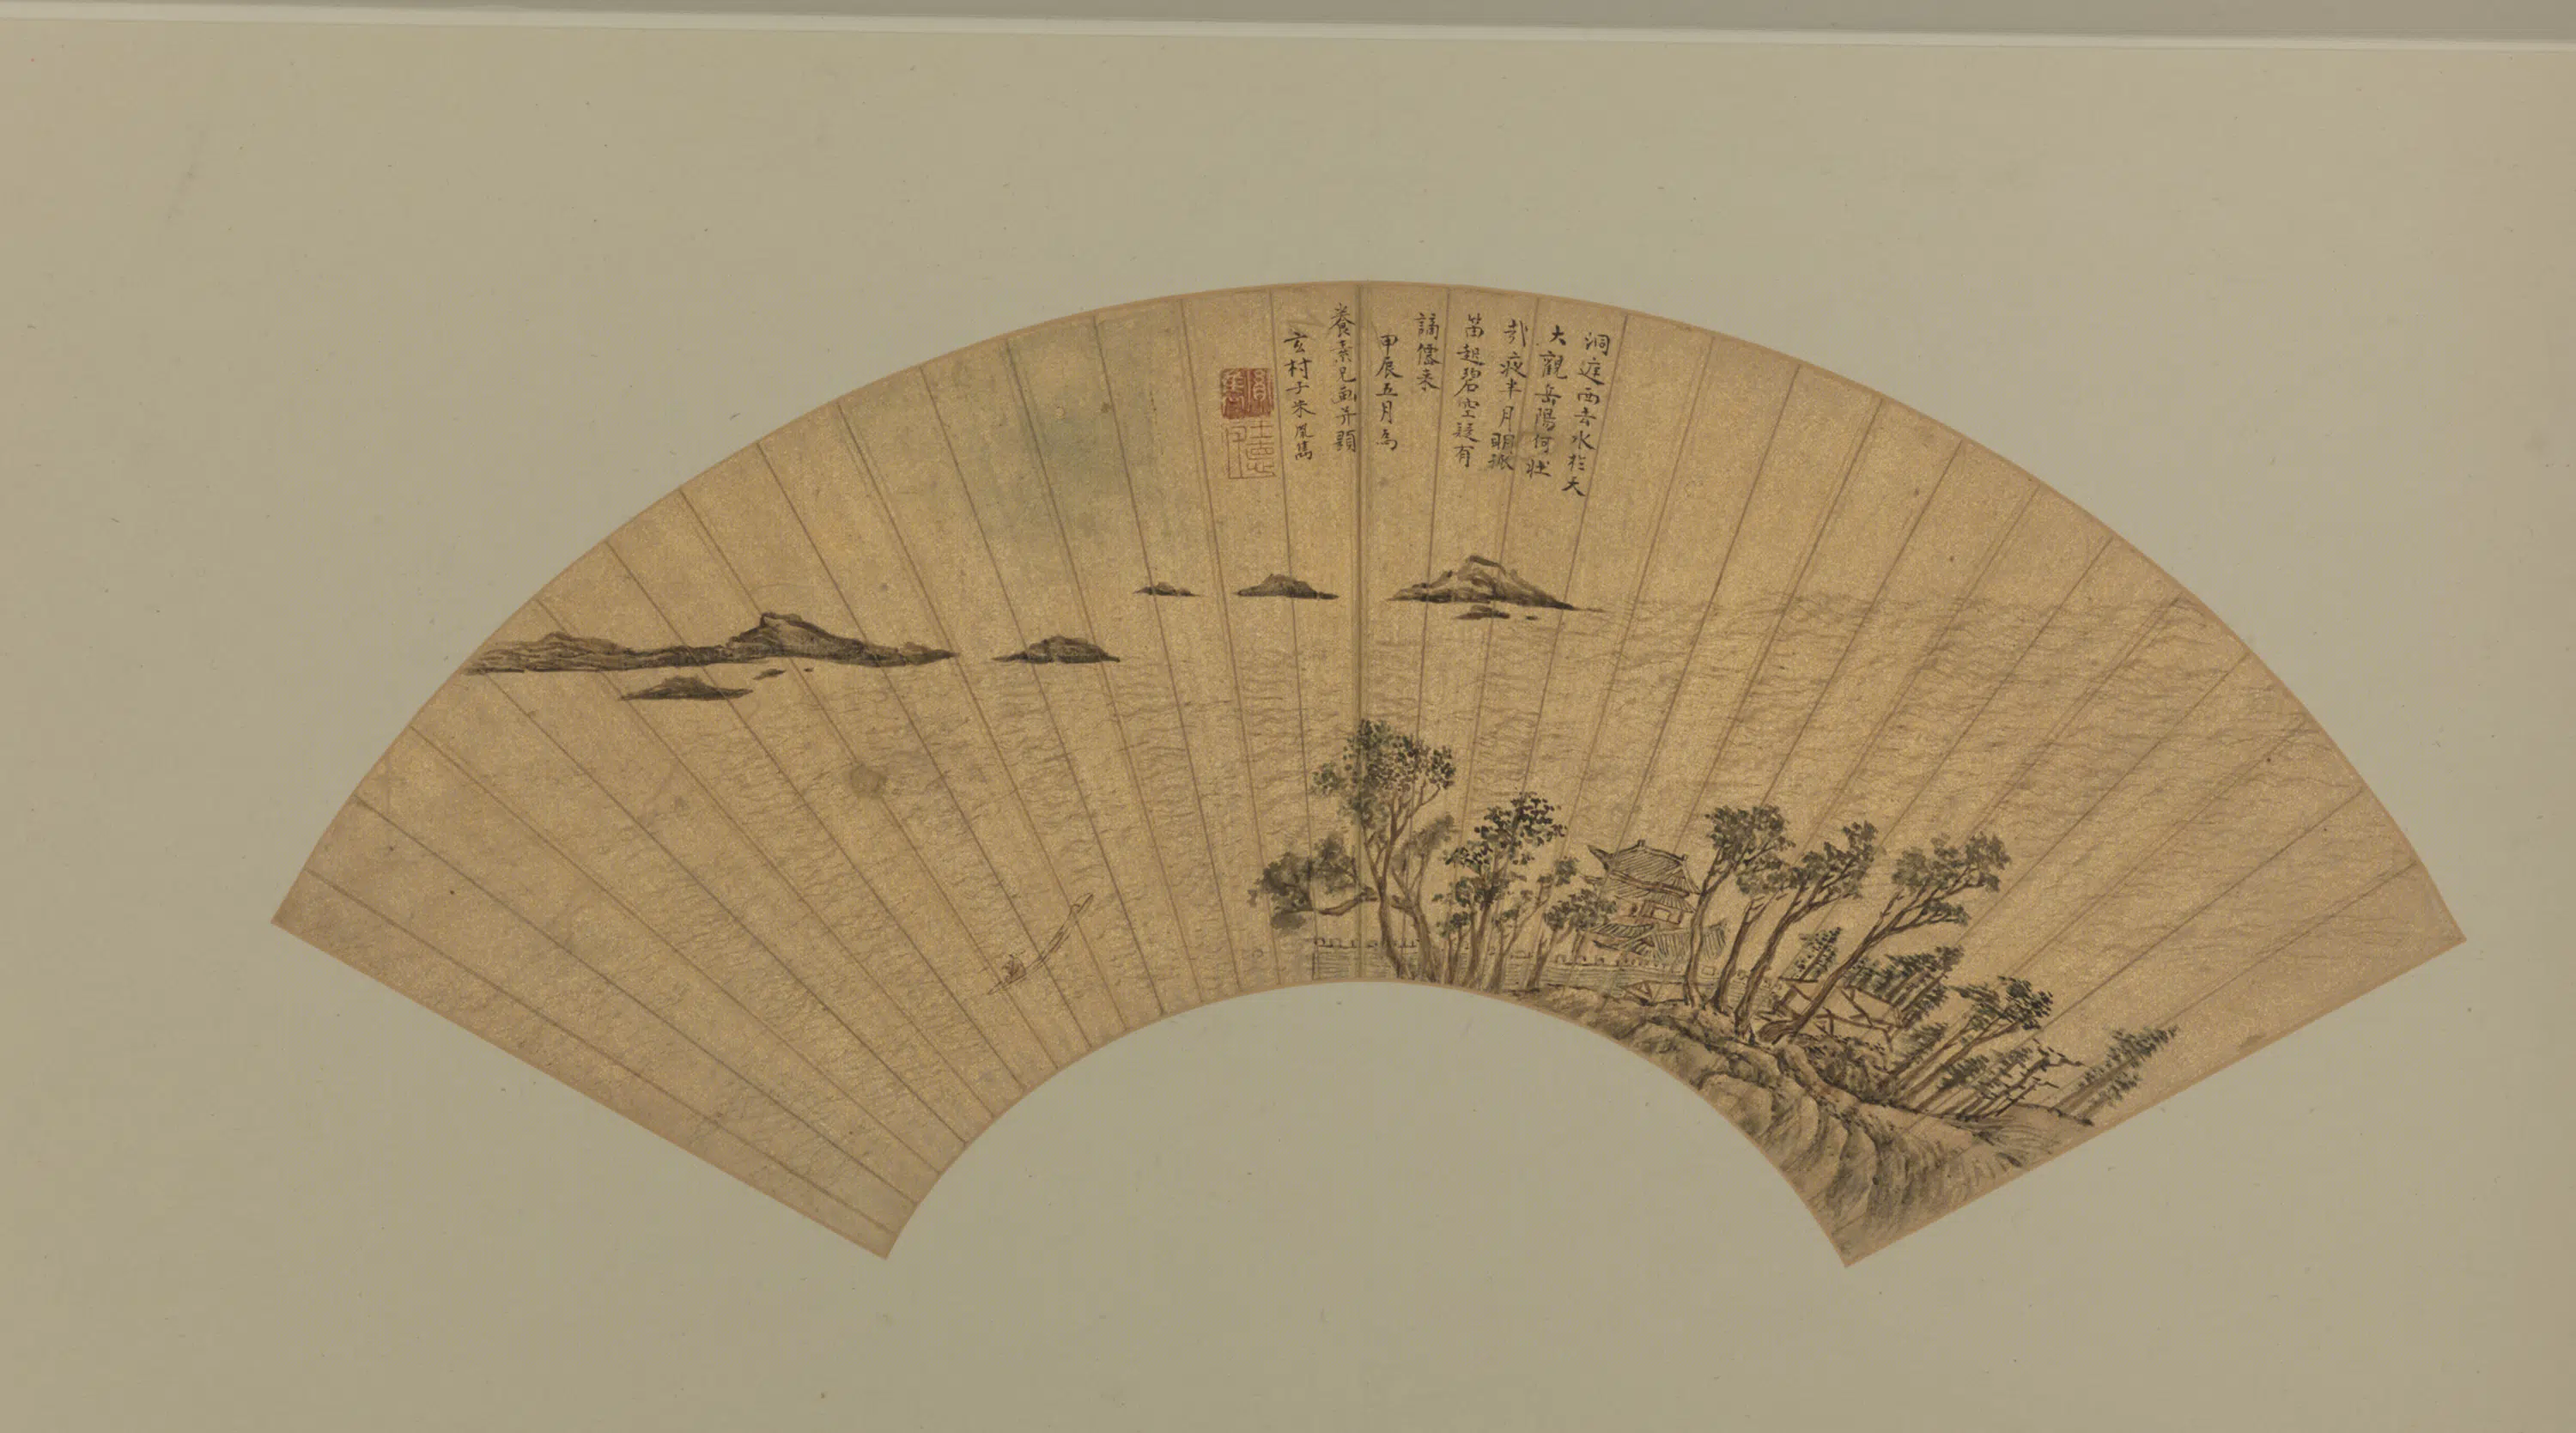 洞庭西去水於天
大觀岳陽何壯
哉夜半月明孤
笛起碧空疑有
謫僊来
甲辰五月為
養素兄畫并題
玄村子朱鳳